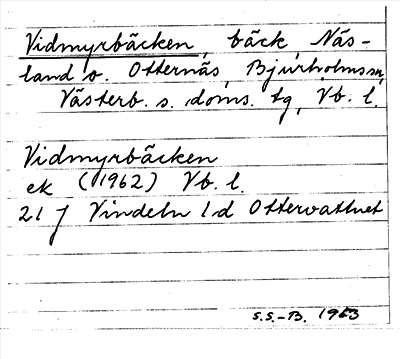 Vidmyrbäcken, bäck, Näs-
land o. Otternäs, Bjurholms sn,
Västerb. s. doms. tg, Vb. l.
Vidmyrbäcken
ek (1962) Vb. l.
21 J Vindeln 1d Ottervattnet
S.S.-B. 1963